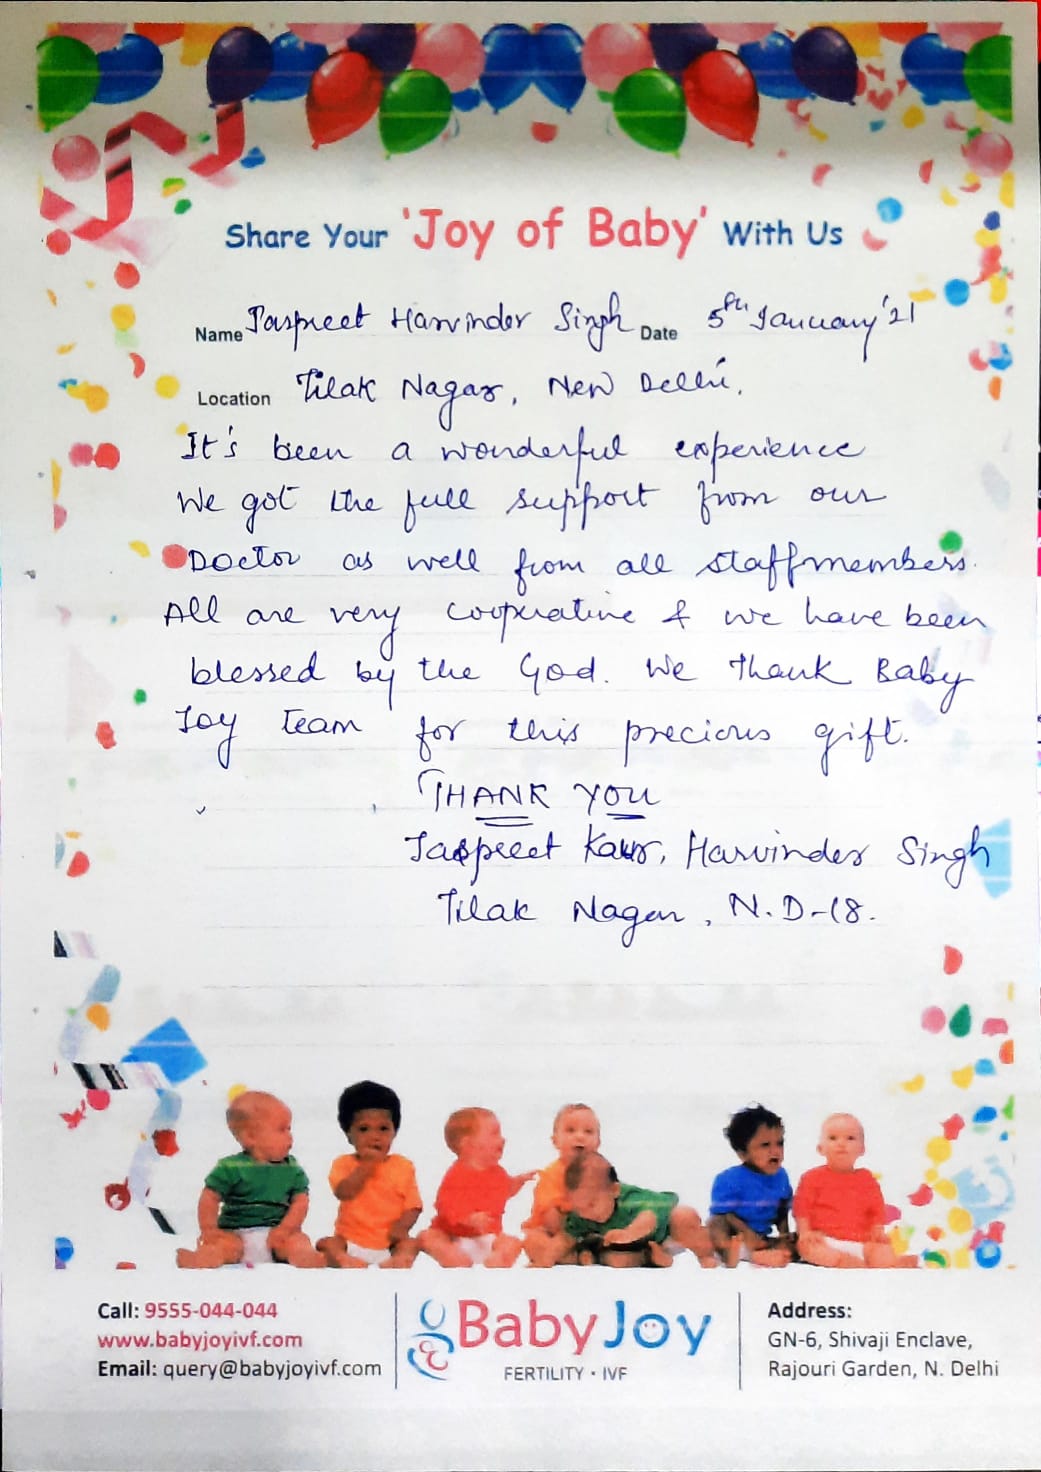 Share Your 'Joy of Baby' With Us
Name Jaspreet Harvinder Singh Date 5th January'21
Location Tilak Nagar, New Delhi.
It's been a wonderful experience
We got the full support from our
Doctor as well from all staffmembers.
All are very cooperative & we have been
blessed by the God. We thank Baby
Joy team for this precious gift.
THANK YOU
Jaspreet Kaur, Harvinder Singh
Tilak Nagar, N.D-18.
Call: 9555-044-044
www.babyjoyivf.com
Email: query@babyjoyivf.com
Baby Joy
FERTILITY · IVF
Address:
GN-6, Shivaji Enclave,
Rajouri Garden, N. Delhi